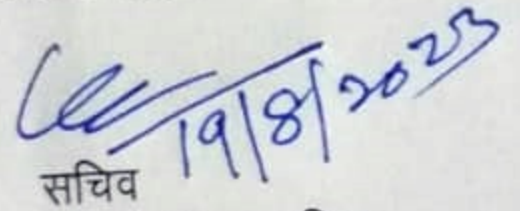 19/8/2023
सचिव